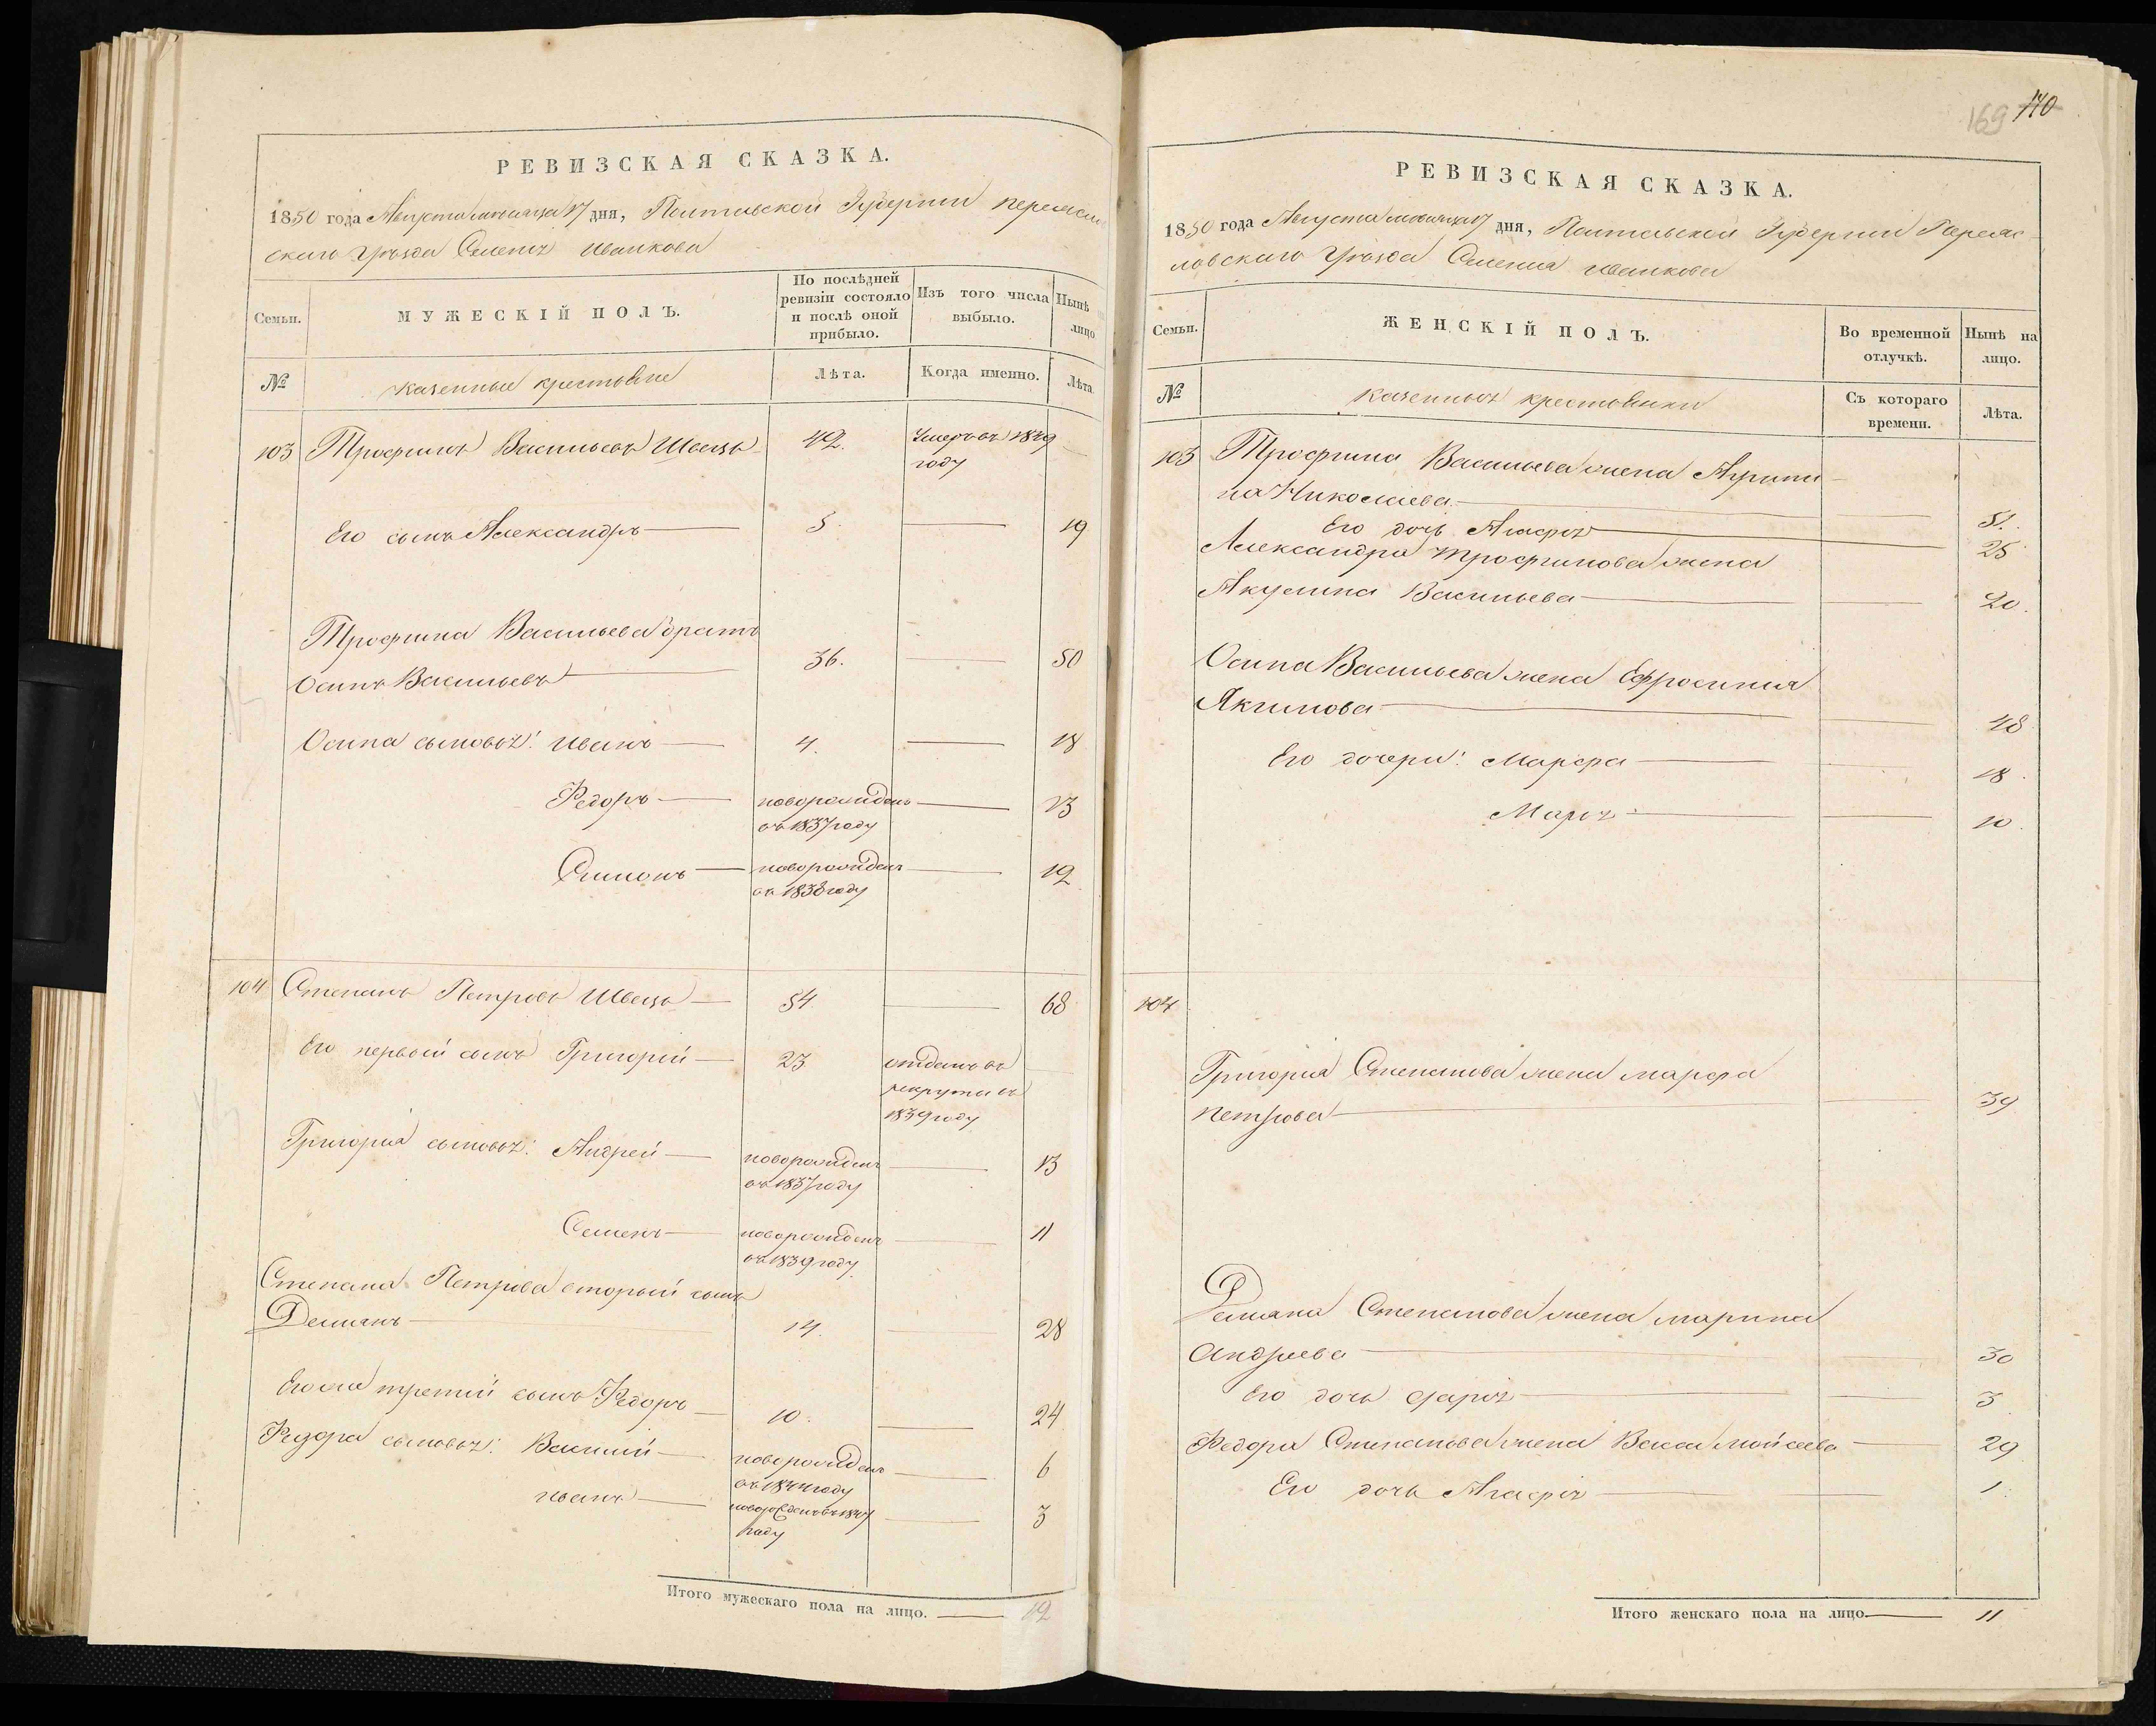 РЕВИЗСКАЯ СКАЗКА.
1850 года Августа месяца 17 дня, Полтавской Губернии Переясл
скаго Уезда Селенія Иванкова
Семьи.
МУЖЕСКІЙ ПОЛЪ.
По послѣдней ревизіи состояло и послѣ оной прибыло.
Изъ того числа выбыло.
Нынѣ лицо
№
Казенные крестьяне
Лѣта.
Когда именно.
Лѣта.
103 Трофимъ Васильевъ Швецъ 42. Умеръ въ 1849
году
Его сынъ Александръ 5 19
Трофима Васильева братъ
Осипъ Васильевъ 36. 50
Осипа сыновья: Иванъ 4. 18
Федоръ новорожденъ 13
въ 1837 году
Симонъ новорожденъ 12
въ 1838 году
104 Степанъ Петровъ Швецъ 54 68
Его первый сынъ Григорій 23 отданъ въ
рекруты въ
1839 году
Григорія сыновья: Андрей новорожденъ 13
въ 1837 году
Семенъ новорожденъ 11
въ 1839 году
Степана Петрова вторый сынъ
Демьянъ 14. 28
Его же третий сынъ Федоръ 10. 24
Федора сыновья: Василий новорожденъ 6
въ 1844 году
Иванъ новорожденъ въ 1847 3
году
Итого мужескаго пола на лицо. 12
169 170
РЕВИЗСКАЯ СКАЗКА.
1850 года Августа месяца 17 дня, Полтавской Губернии Переяс
ловскаго Уезда Селения Иванкова
Семьи.
ЖЕНСКІЙ ПОЛЪ.
Во временной отлучкѣ.
Нынѣ на лицо.
№
Казенныя крестьянки
Съ котораго времени.
Лѣта.
103 Трофима Васильева жена Агрипи
на Николаева 51.
Его дочь Агафія 25
Александра Трофимова жена
Акулина Васильева 20.
Осипа Васильева жена Ефросиния
Якимова 48
Его дочери: Марфа 18.
Марія 10.
104
Григория Степанова жена Марфа
Петрова 39
Демьяна Степанова жена Марина
Андреева 30
Его дочь 3
Федора Степанова жена Васса Мойсеева 29
Его дочь Агафія 1.
Итого женскаго пола на лицо. 11